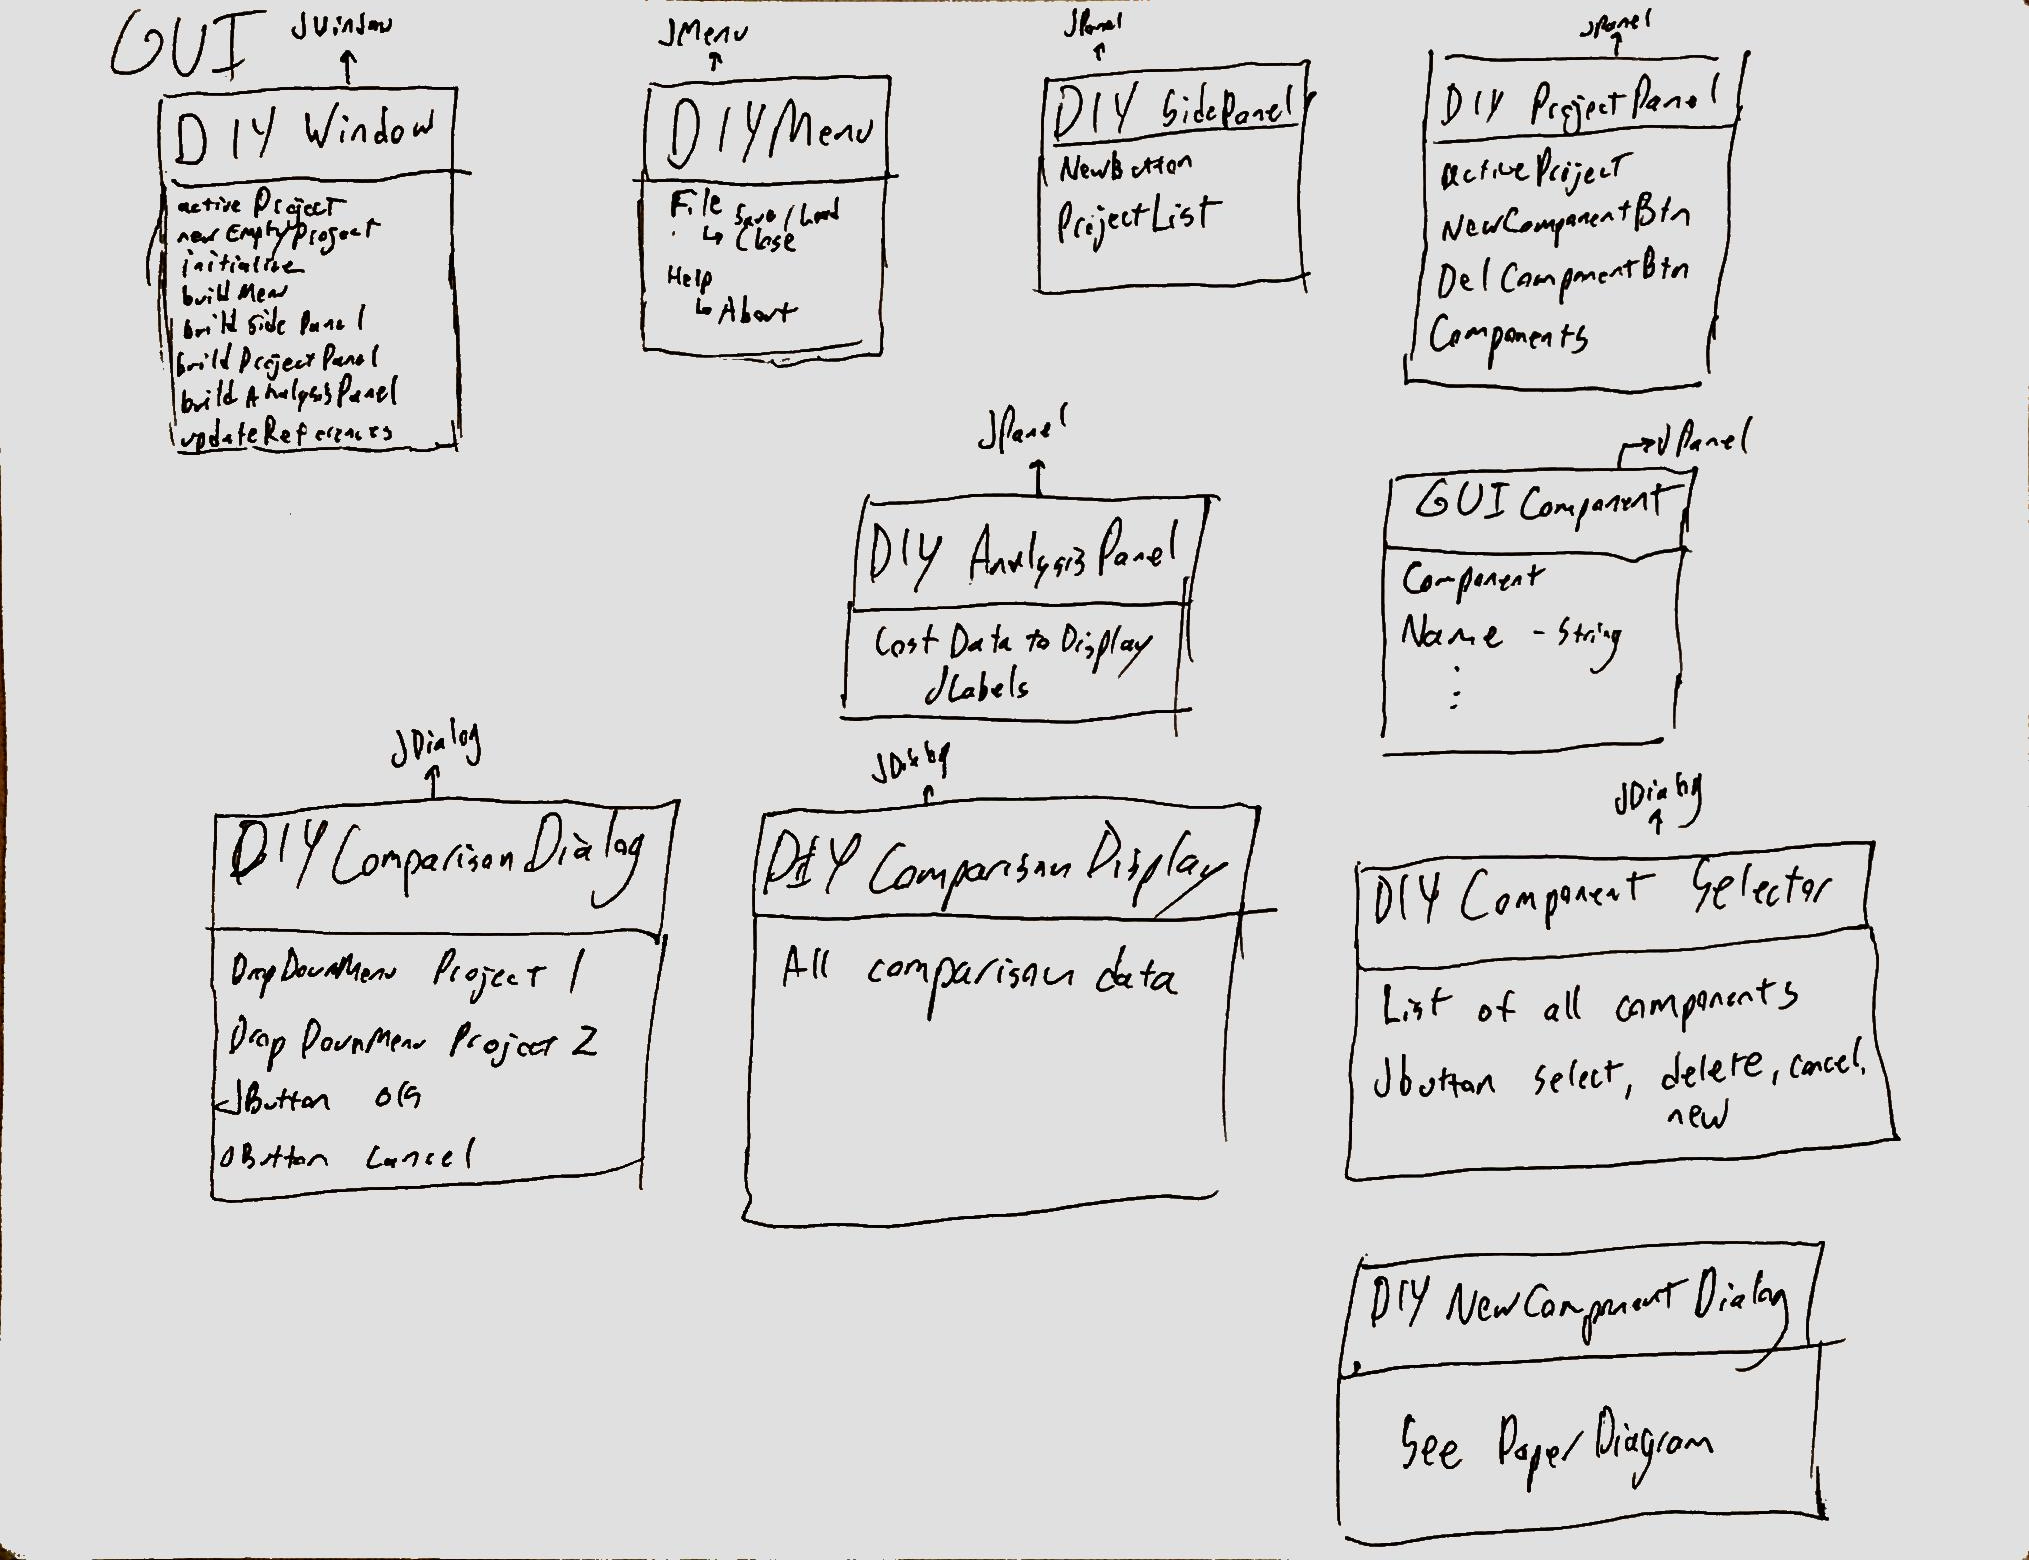 GUI
JWindow
DIY Window
active Project
newEmptyProject
initialize
build Menu
build Side Panel
build ProjectPanel
build AnalysisPanel
updateReferences
JMenu
DIYMenu
File
Save/Load
↳ Close
Help
↳ About
JPanel
DIY SidePanel
NewButton
ProjectList
JPanel
DIY ProjectPanel
activeProject
NewComponentBtn
Del ComponentBtn
Components
JPanel
DIY AnalysisPanel
Cost Data to Display
JLabels
JPanel
GUI Component
Component
Name - String
⋮
JDialog
DIY Comparison Dialog
DropDownMenu Project 1
Drop DownMenu Project 2
JButton OK
JButton Cancel
JDialog
DIY Comparison Display
All comparison data
JDialog
DIY Component Selector
List of all components
Jbutton select, delete, cancel,
new
DIY NewComponent Dialog
See Paper Diagram